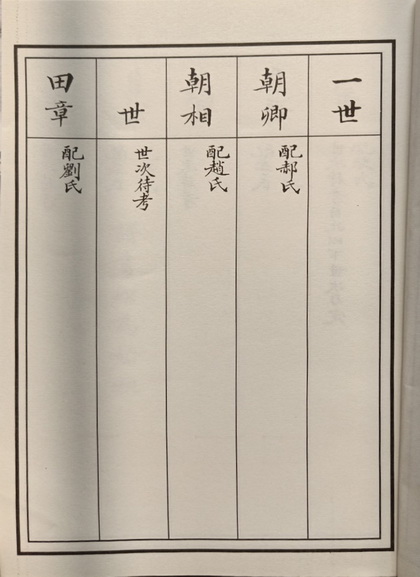 一世
朝卿
配郝氏
朝相
配趙氏
世
世次待考
田章
配劉氏